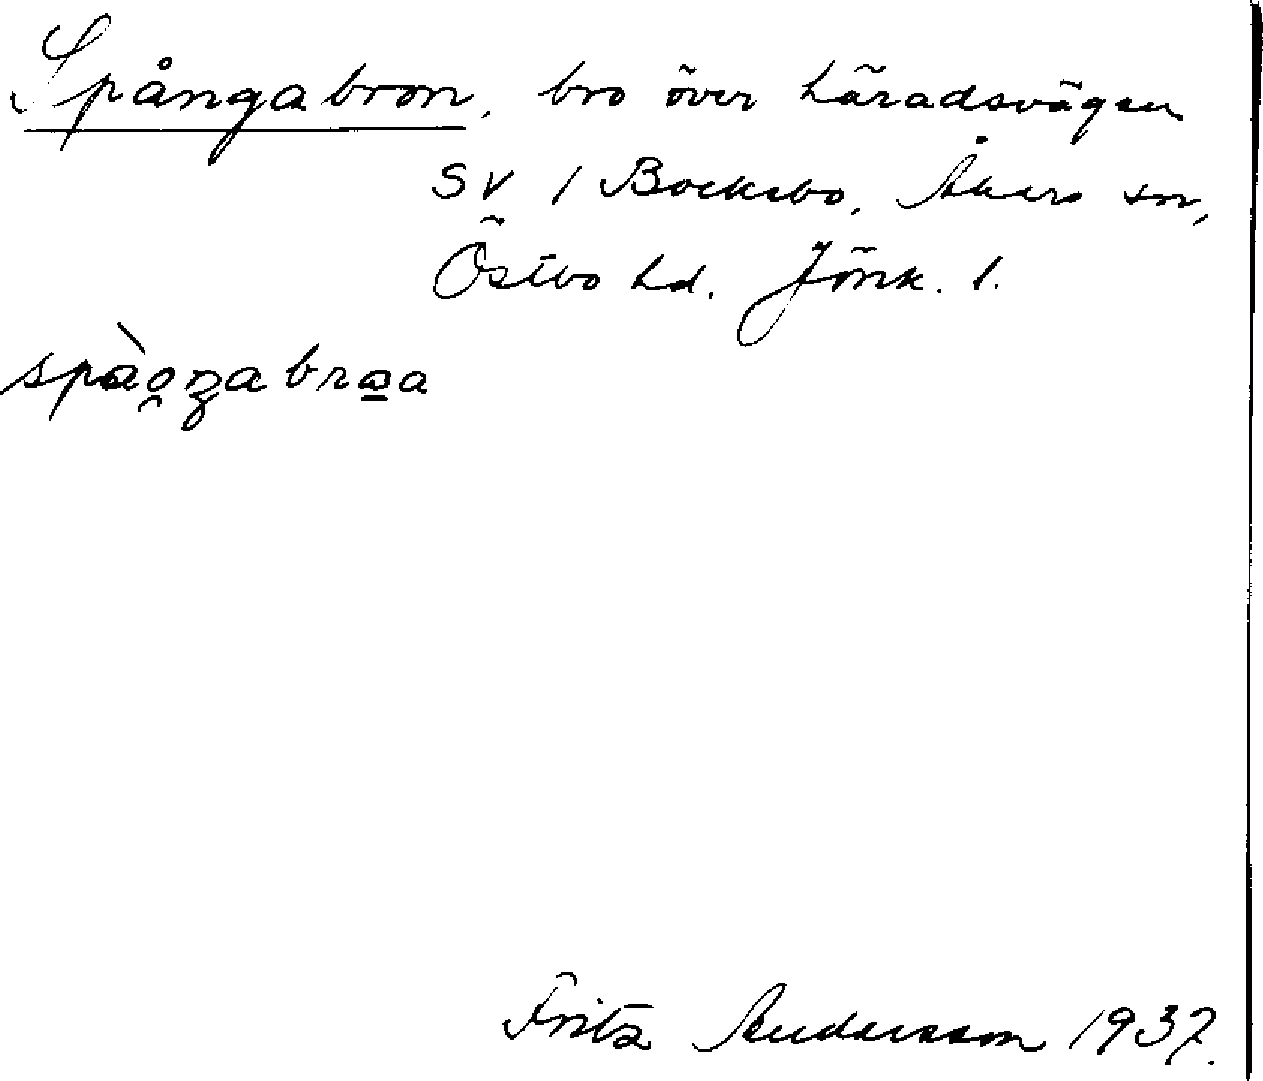 Spångabron, bro över häradsvägen
SV / Bocksbo, Åkers sn,
Östbo hd. Jönk. l.
spào̯ŋabrꜵa
Fritz Andersson 1937.